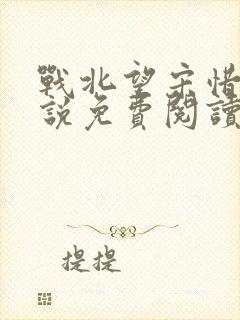 戰北望宋惜
說免費閱讀
提提